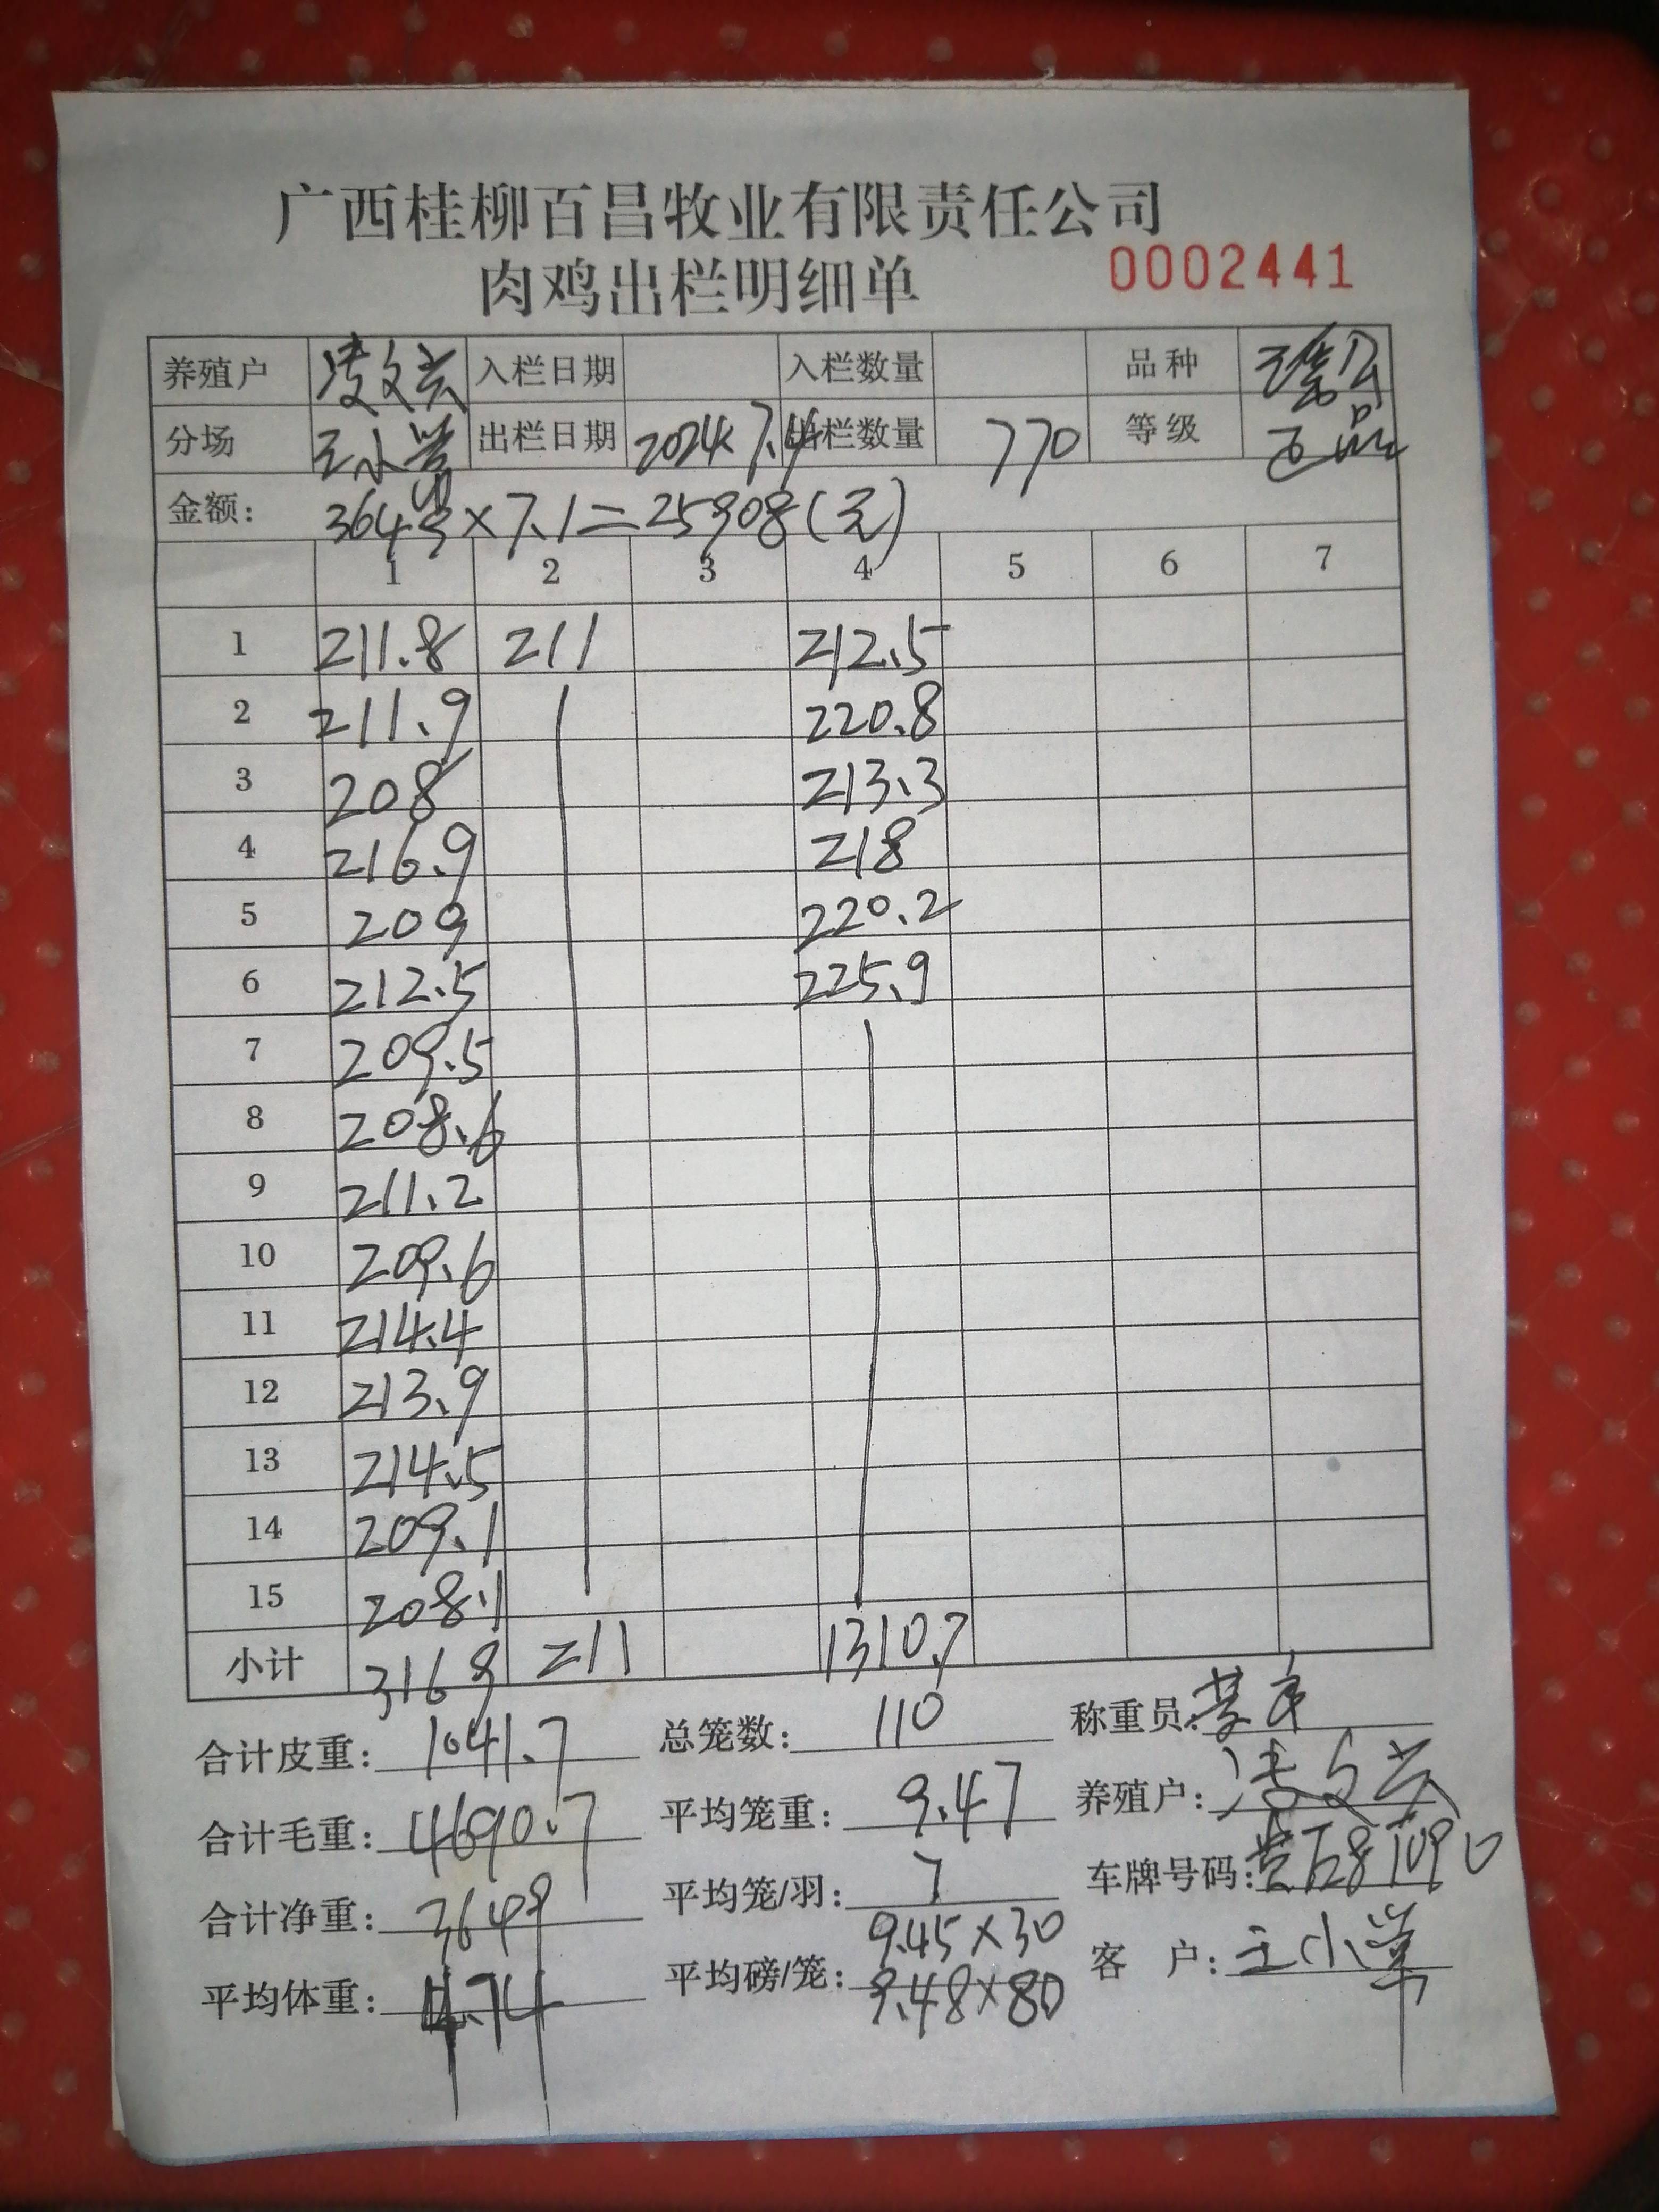 广西桂柳百昌牧业有限责任公司
肉鸡出栏明细单 0002441
养殖户 凌文兴 入栏日期 入栏数量 品种
分场 出栏日期 2024.7.4 出栏数量 770 等级 正品
金额: 3649×7.1=25908(元)
1 2 3 4 5 6 7
1 211.8 211 212.5
2 211.9 220.8
3 208 213.3
4 216.9 218
5 209 220.2
6 212.5 225.9
7 209.5
8 208.6
9 211.2
10 209.6
11 214.4
12 213.9
13 214.5
14 209.1
15 208.1
小计 3169 211 1310.7
合计皮重: 1041.7 总笼数: 110 称重员:
合计毛重: 4690.7 平均笼重: 9.47 养殖户: 凌文兴
合计净重: 3649 平均笼/羽: 7 车牌号码:
平均体重: 4.74 平均磅/笼: 9.45×30 客户: 王小
9.48×80